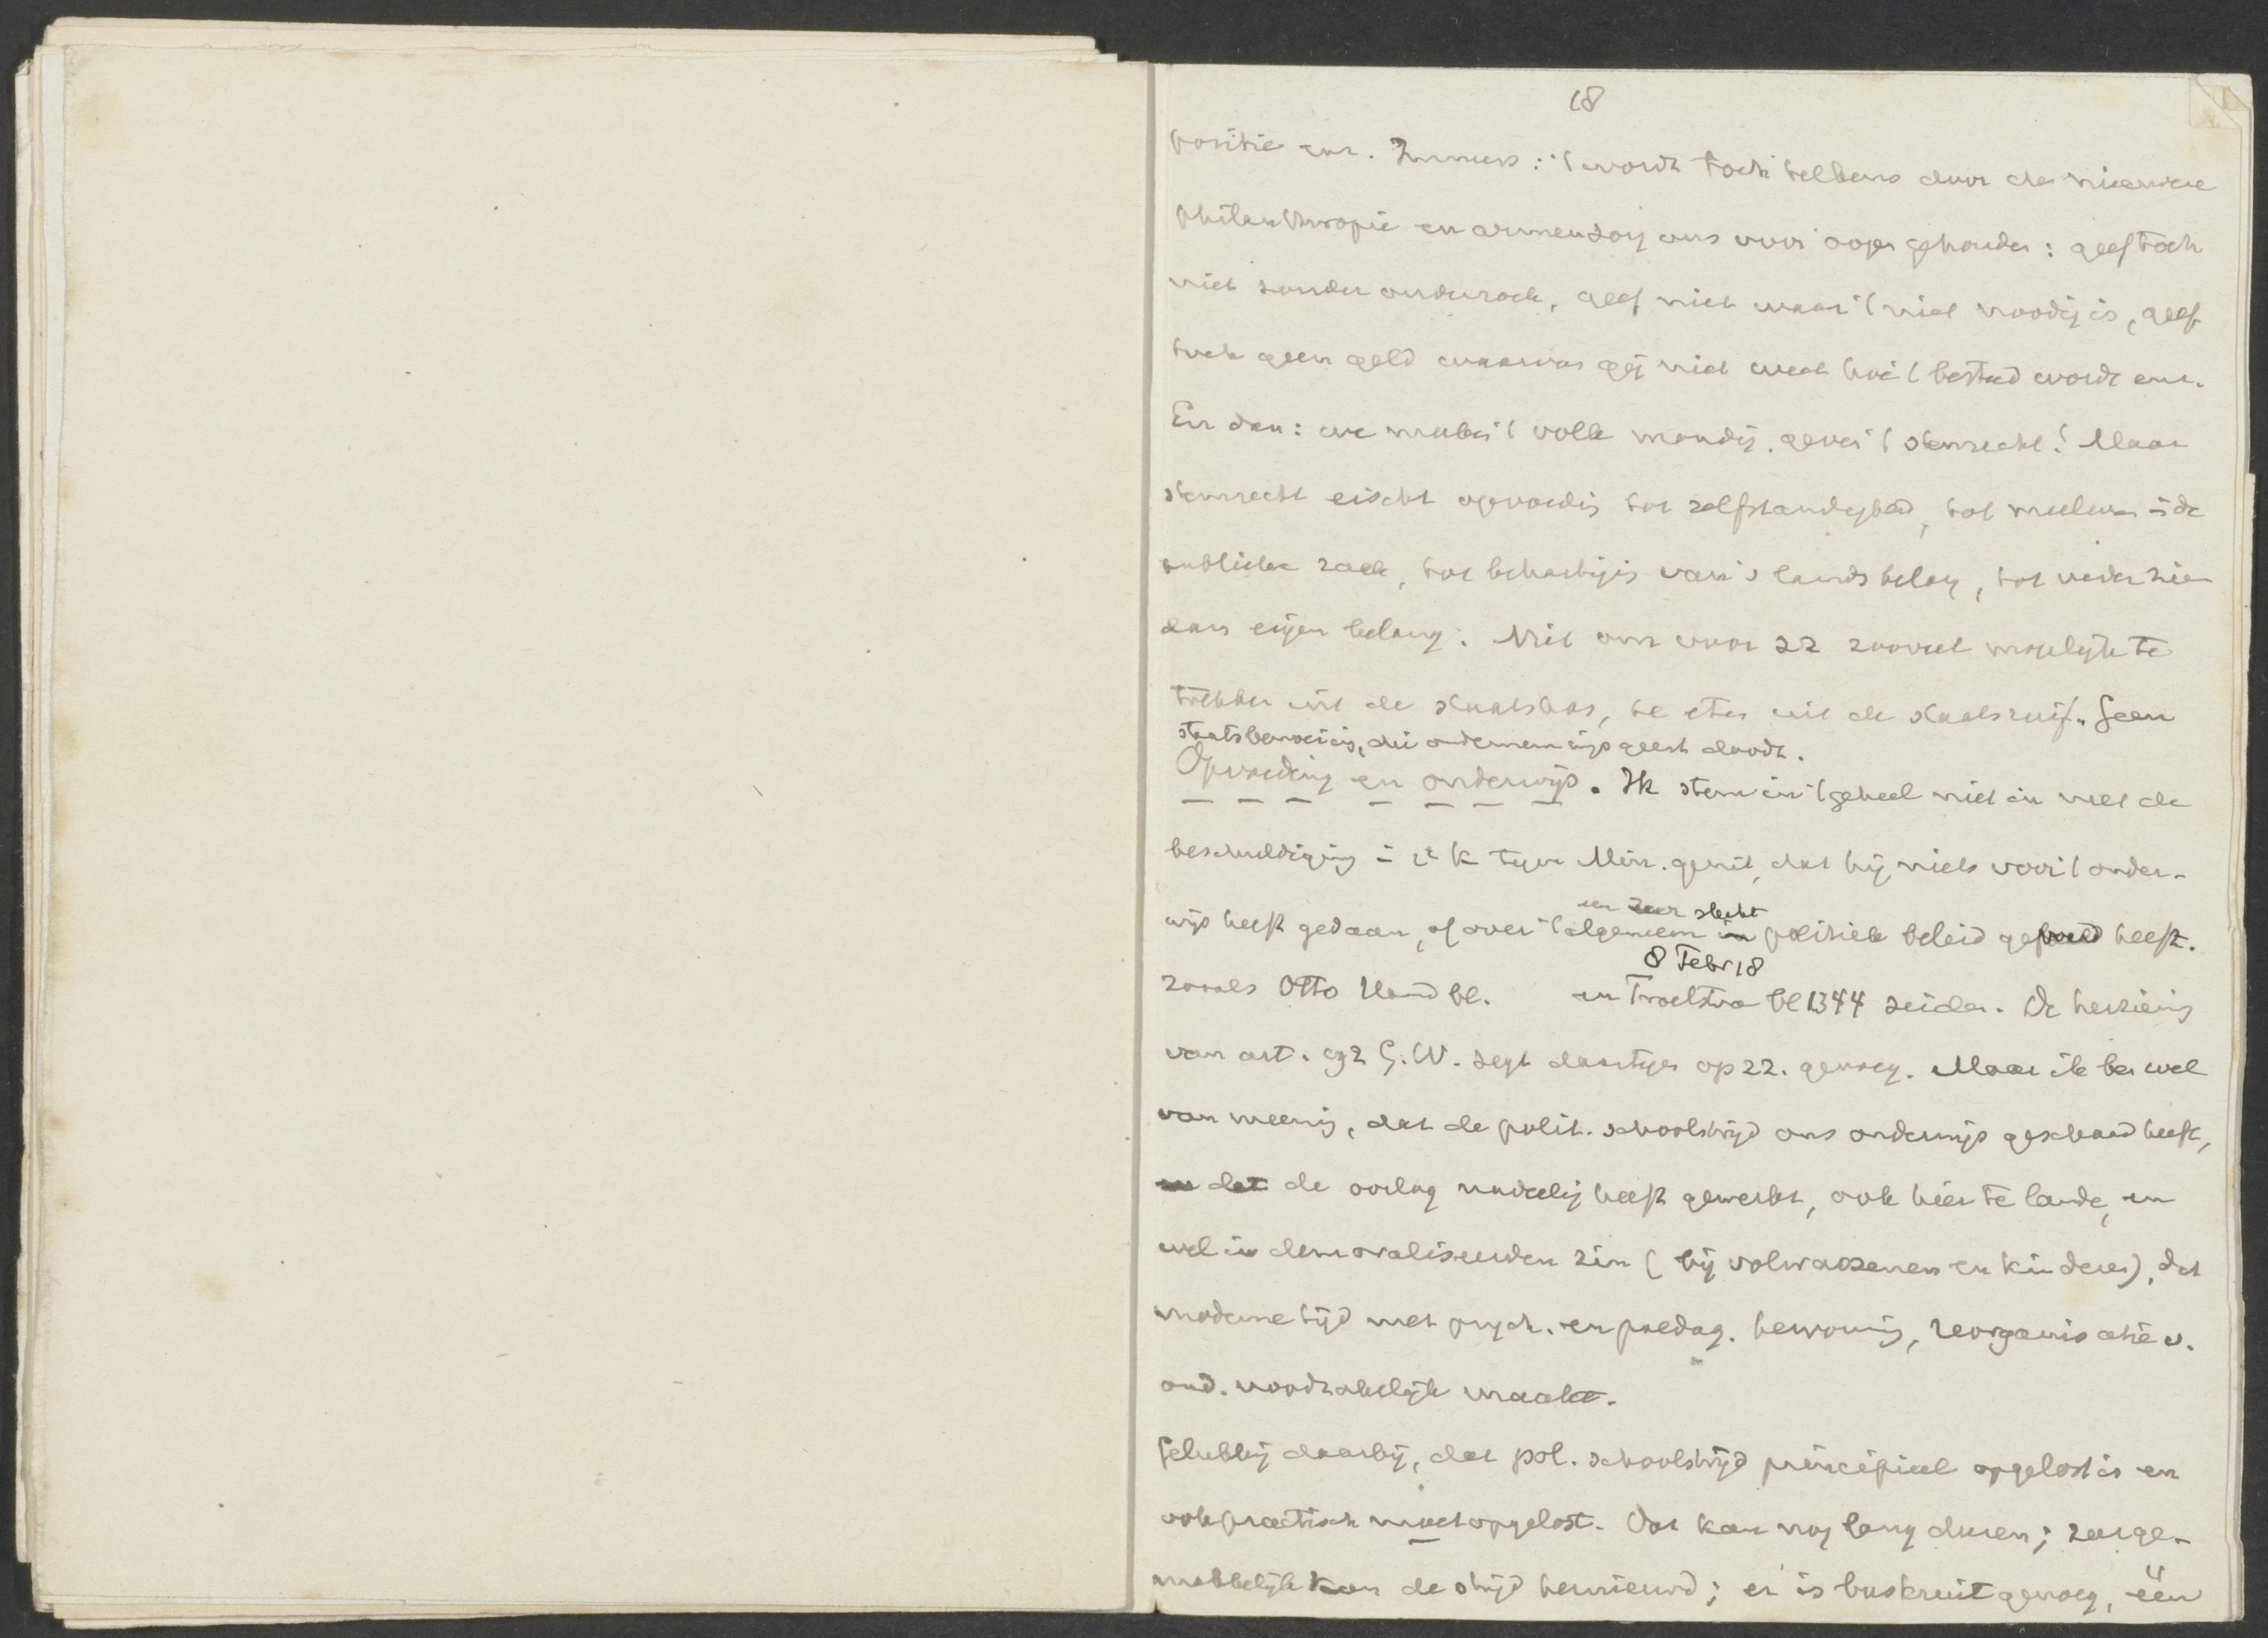 18
positie enz. Immers: 't wordt toch telkens door de nieuwere
philanthropie en armenzorg ons voor oogen gehouden: geef toch
niet zonder onderzoek, geef niet waar 't niet noodig is, geef
toch geen geld waarvan gij niet weet hoe 't besteed wordt enz.
En dan: we maken 't volk mondig. geven 't stemrecht! Maar
stemrecht eischt opvoedig tot zelfstandigheid, tot meeleven i de
publieke zaak, tot behartigig van 's lands belang, tot verder zien
dan eigen belang. Niet om voor zz zooveel mogelijk te
trekken uit de staatskas, te eten uit de staatsruif. Geen
staatsbemoeiig, die ondernemingsgeest doodt.
Opvoeding en onderwijs. Ik stem in 't geheel niet in met de
beschuldiging i 2e K tegen Min. geuit, dat hij niets voor 't onder-
wijs heeft gedaan, of over 't algemeen een zeer slecht politiek beleid gevoerd heeft.
zooals Otto Hand bl. en Troelstra 8 Febr 18 bl 1344 zeiden. De herzienig
van art. 192 G.W. zegt daartegen op zz. genoeg. Maar ik ben wel
van meenig, dat de polit. schoolstrijd ons onderwijs geschaad heeft,
en dat de oorlog nadeelig heeft gewerkt, ook hier te lande, en
wel in demoraliseerenden zin (bij volwassenen en kinderen), dat
moderne tijd met psych. en paedag. hervormig, reorganisatie v.
ond. noodzakelijk maakt.
Gelukkig daarbij, dat pol. schoolstrijd principieel opgelost is en
ook practisch moet opgelost. Dat kan nog lang duren; zeer ge-
makkelijk kan de strijd hernieuwd; er is buskruit genoeg, één